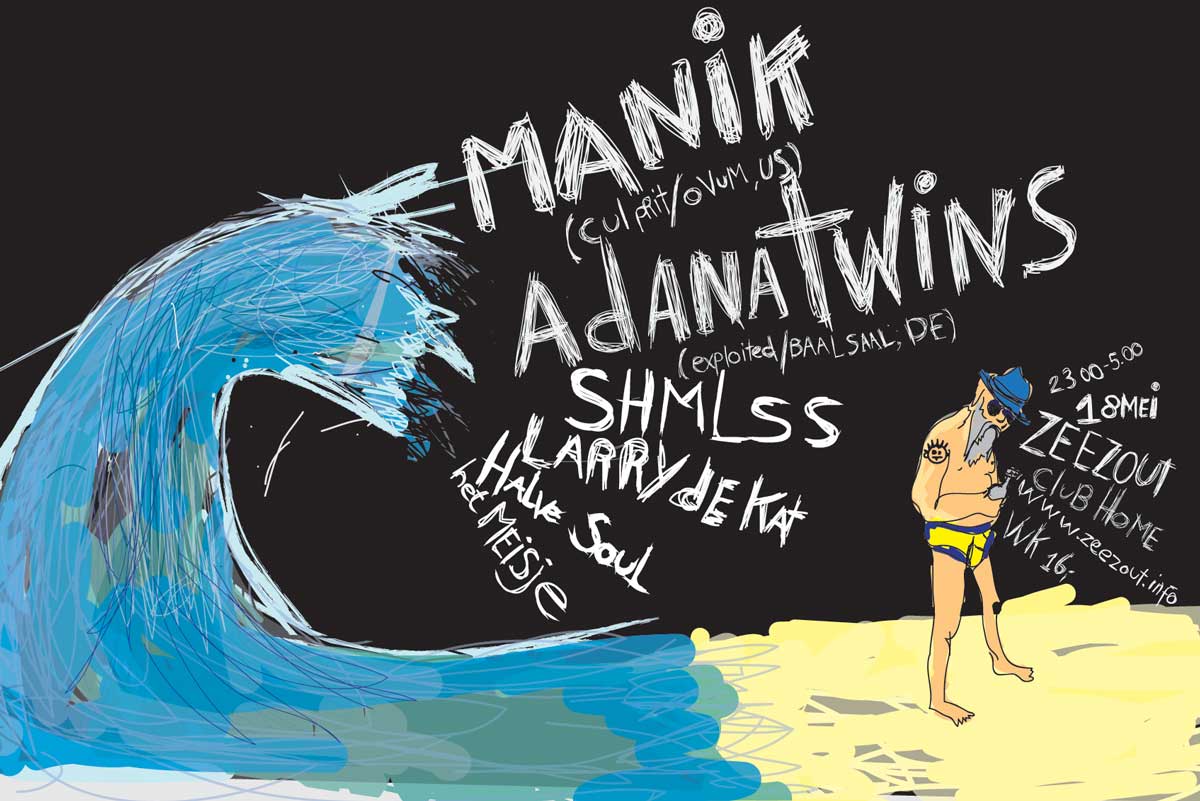 MANiK
(culprit/oVuM, US)
AdANATWiNS
(exploited/BAALSAAL, DE)
SHMLSS
LARRY dE KAT
HALVE SOUL
het MEISje
23 00-5.00
18MEi
ZEEZOUT
CLUB HOME
www.zeezout.info
VVK 16,-